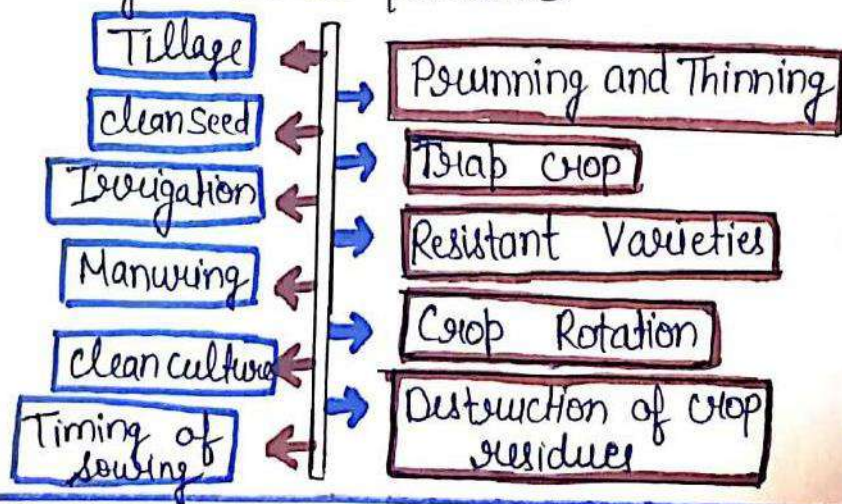 Tillage
clean seed
Irrigation
Manuring
clean culture
Timing of
sowing
Prunning and Thinning
Trap crop
Resistant Varieties
Crop Rotation
Destruction of crop
residues